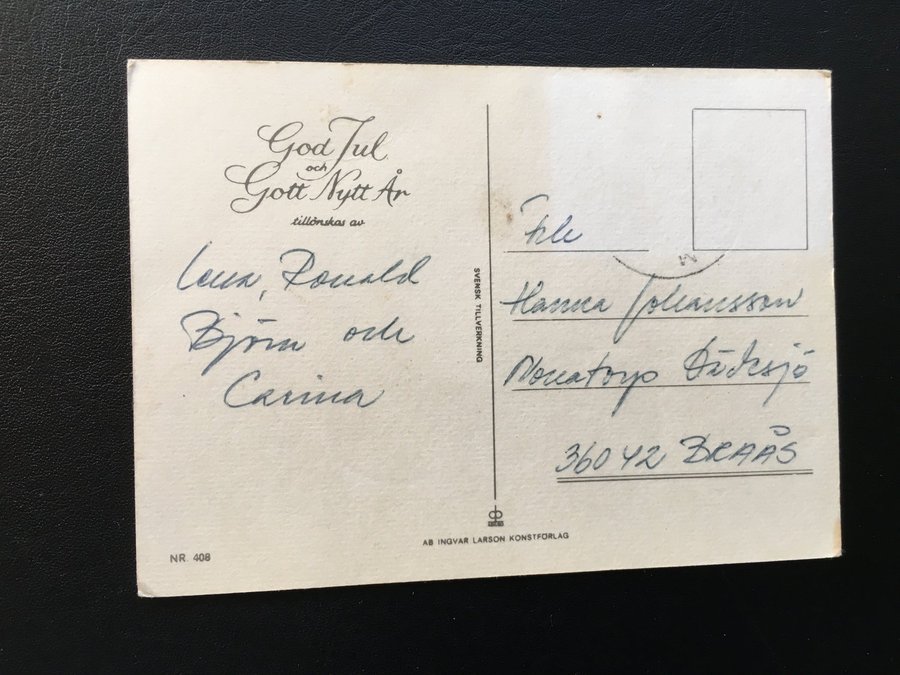 God Jul
och
Gott Nytt År
tillönskas av
Lena, Ronald
Björn och
Carina
SVENSK TILLVERKNING
Hanna Johansson
36042 BRAÅS
AB INGVAR LARSON KONSTFÖRLAG
NR. 408